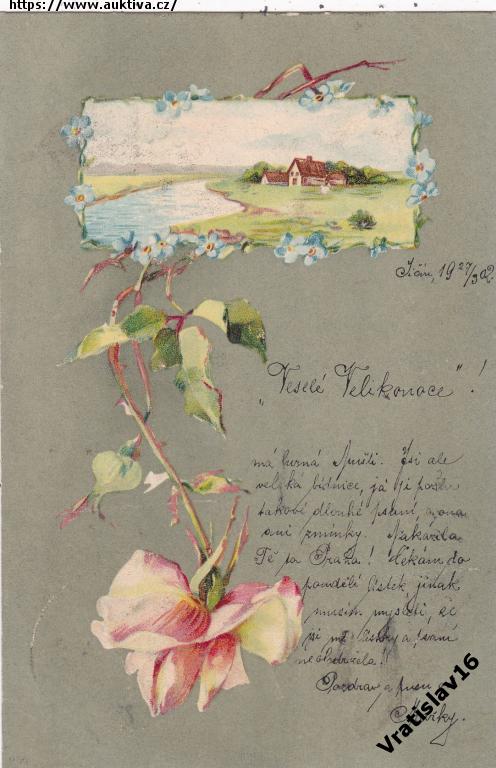 https://www.auktiva.cz/
Jičín, 19 27/3 02.
„Veselé Velikonoce"!
má Isi ale
veliká bídnice, já ji pošlu
takové dlouhé psaní, a ona
ani zmínky. Nakazila
Tě ta Praha! Čekám do
pondělí lístek jinak
musím mysleti, že
si mé lístky a psaní
neobdržela!!
Pozdrav a pusu
Vratislav16